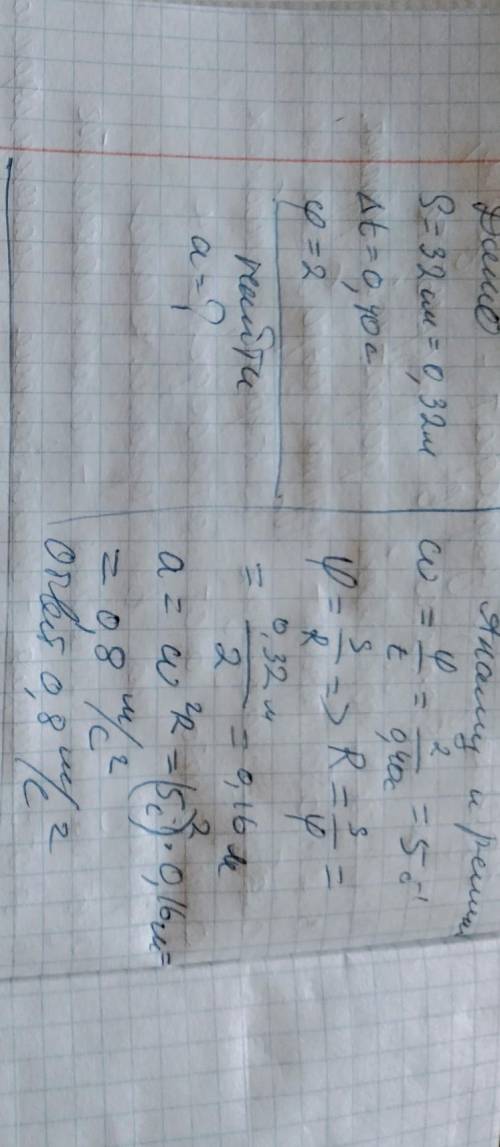 Дано
S = 32 см = 0,32 м
Δt = 0,40 с
φ = 2
найти
a = ?
Анализ и решен
ω = φ/t = 2/0,40с = 5 с⁻¹
φ = S/R => R = S/φ =
= 0,32 м/2 = 0,16 м
a = ω²R = (5 с⁻¹)² · 0,16 м =
= 0,8 м/с²
Ответ 0,8 м/с²